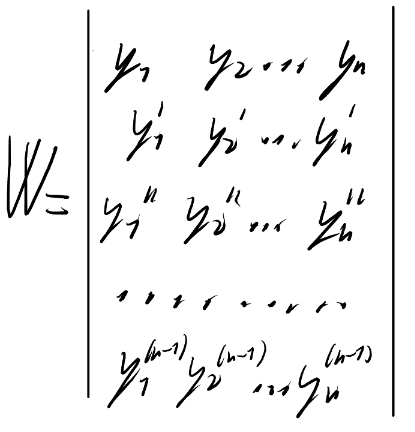 y₁ y₂ ... yₙ
y₁' y₂' ... yₙ'
W=
y₁'' y₂'' ... yₙ''
. . . . . . . . .
y₁⁽ⁿ⁻¹⁾ y₂⁽ⁿ⁻¹⁾ ... yₙ⁽ⁿ⁻¹⁾